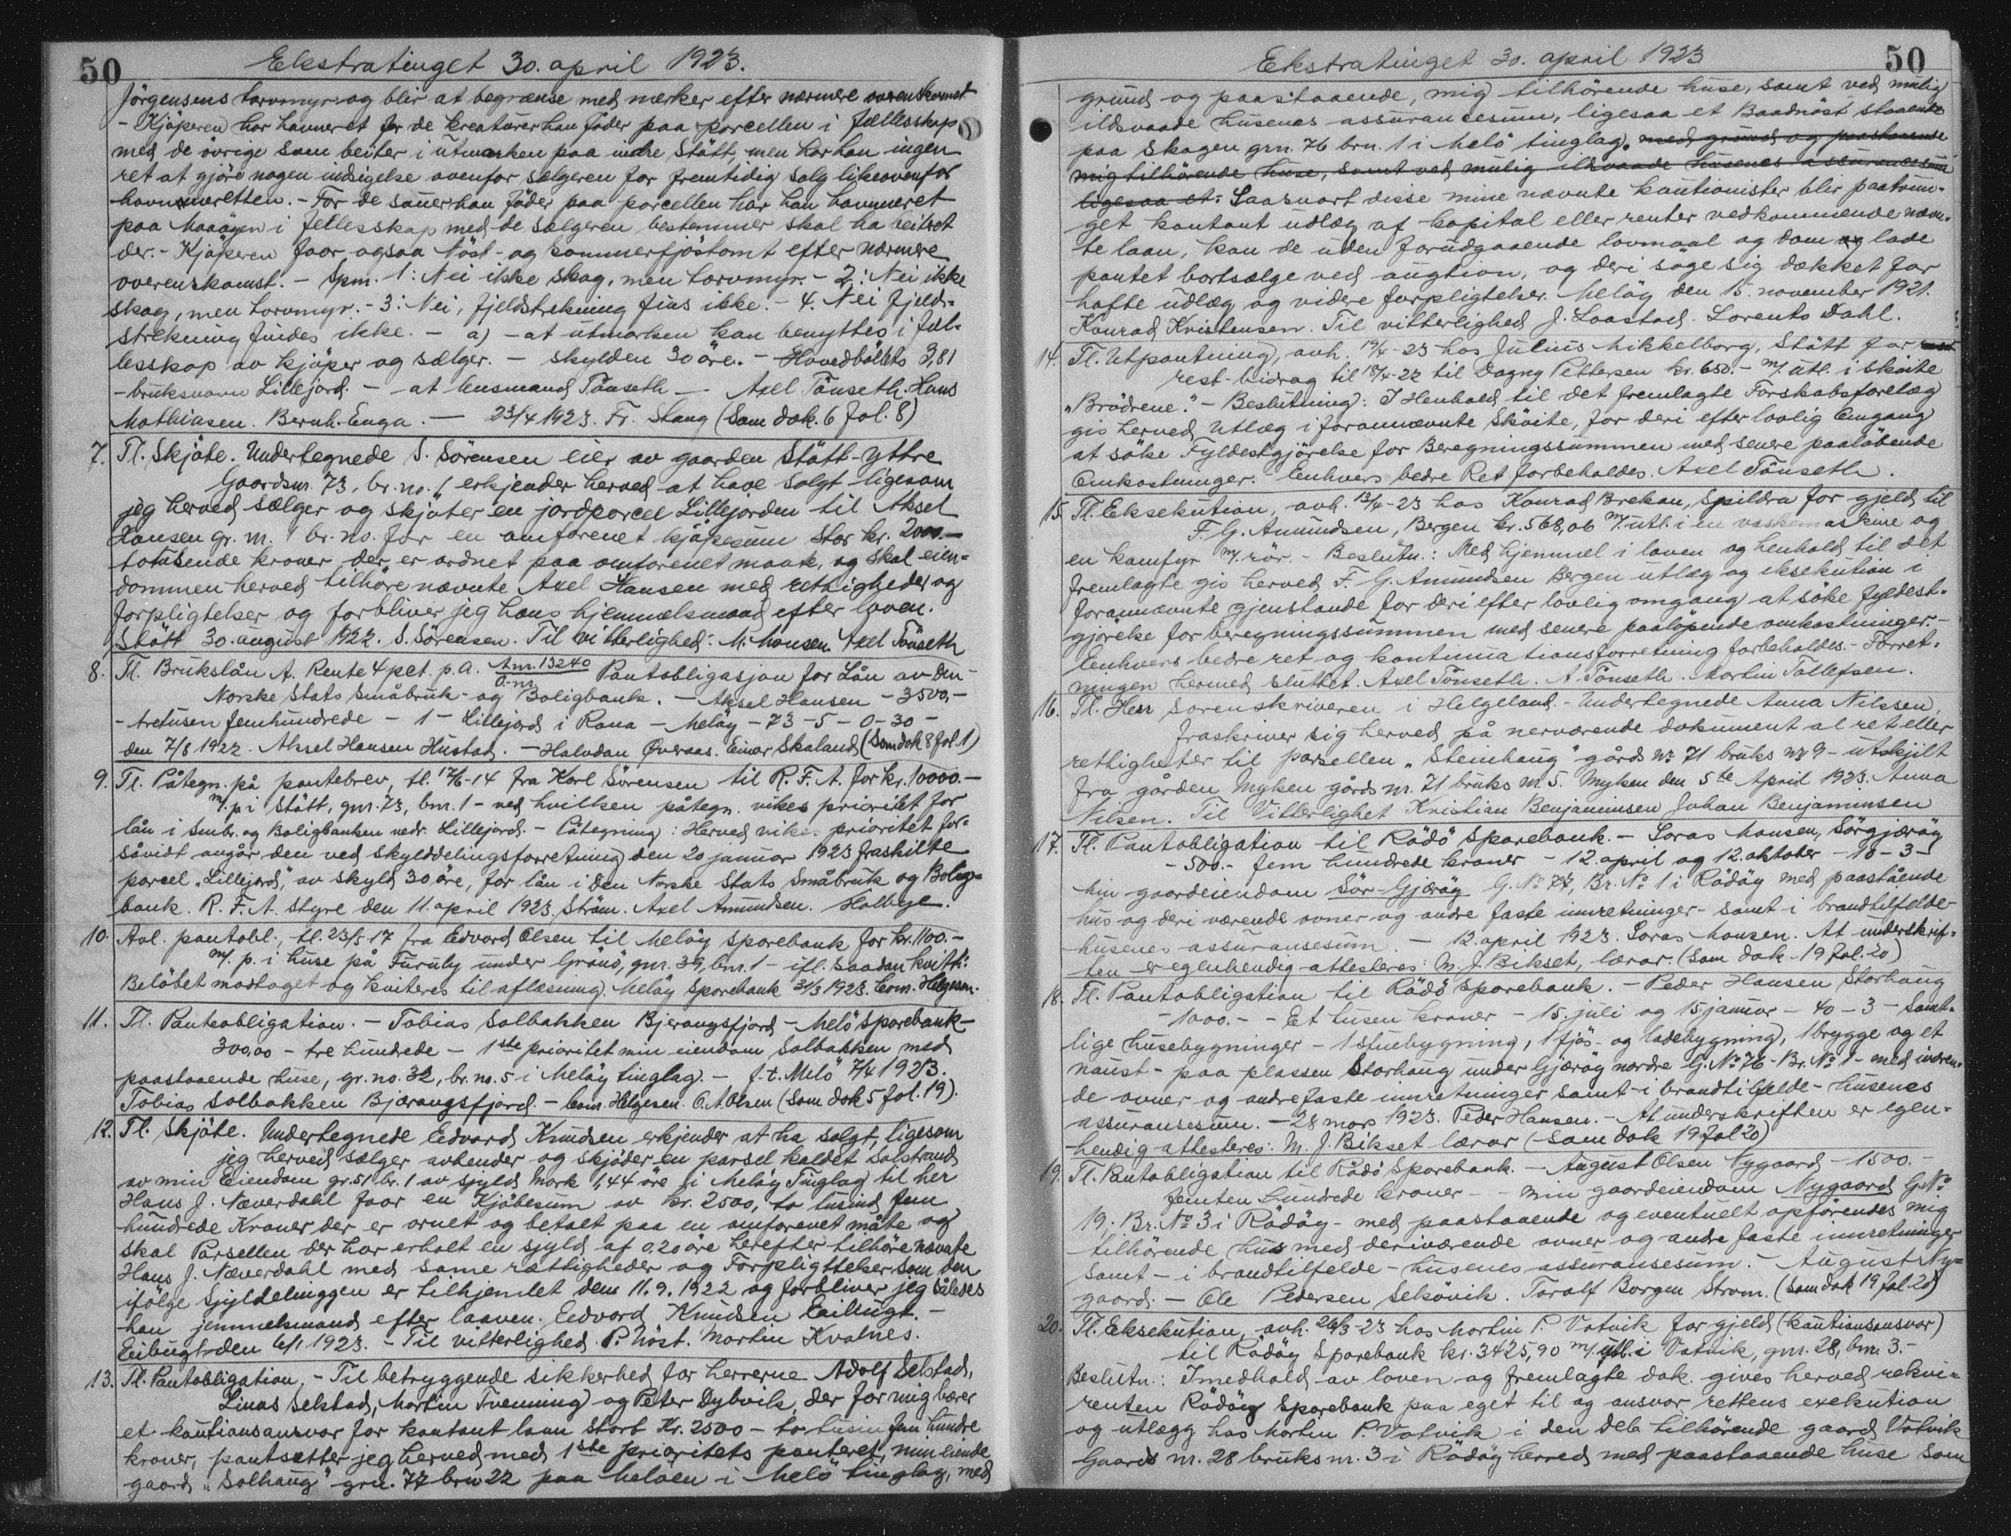 50
Ekstratinget 30. april 1923.
Jörgensens torvmyr og blir at begrænse med merker efter nærmere overenskomst
- Kjöperen har havneret for de kreaturer han föder paa parcellen i fællesskap
med de övrige som beiter i utmarken paa indre Stött, men har han ingen
ret at gjöre nogen indsigelse ovenfor sælgeren for fremtidig salg likeovenfor
havneretten. - For de sauer han föder paa parcellen har han havneret
paa Maaöyen i fellesskap med de sælgeren bestemmer skal ha beitret
der. - Kjöperen faar ogsaa Nöst- og sommerfjöstomt efter nærmere
overenskomst. - Spm. 1: Nei ikke skog, men torvmyr. - 2: Nei ikke
skog, men torvmyr. - 3: Nei, fjeldstrekning fins ikke. - 4. Nei fjeld-
strekning findes ikke. - a) - at utmarken kan benyttes i fæl-
lesskap av kjöper og sælger. - skylden 30 öre. - Hovedbölets 3,81
- bruksnavn Lillejord. - at lensmand Tönseth - Axel Tönseth. Hans
Mathiasen. Bernh. Enga. - 23/4 1923. Fr. Stang (Som dok. 6 fol. 8)
7. Tl. Skjöte. Undertegnede S. Sörensen eier av gaarden Stött-Yttre
Gaardsnr. 73, br. no. 1 erkjender herved at have solgt ligesom
jeg herved sælger og skjöter en jordparcel Lillejorden til Aksel
Hansen gr. nr. 1 br. no. for en omforenet kjöpesum stor kr. 2000.-
totusende kroner der er ordnet paa omforenet maate, og skal eien-
dommen herved tilhöre nævnte Axel Hansen med rettigheder og
forpligtelser og forbliver jeg hans hjemmelsmand efter loven.
Stött 30. august 1922. S. Sörensen. Til vitterlighed: M. Monsen. Axel Tönseth
8. Tl. Brukslån A. Rente 4 pct. p.a. Anr. 13240 O-nr. Pantobligasjon for Lån av Den
Norske Stats Småbruk- og Boligbank. - Aksel Hansen - 3500,-
- tretusen femhundrede - 1 - Lillejord i Rana - Melöy - 73 - 5 - 0 - 30 -
den 7/8 1922. Aksel Hansen Hustad. - Halvdan Øveraas. Einar Skaland (Som dok 8 fol. 1)
9. Tl. Påtegn. på pantebrev, tl. 17/6-14 fra Karl Sörensen til R. F. A. for kr. 10000.-
m/. p. i Stött, gnr. 73, bnr. 1 - ved hvilken påtegn. vikes prioritet for
lån i Smbr. og Boligbanken vedr. Lillejord. - Påtegning: Herved vikes prioritet for-
såvidt angår den ved skylddelingsforretning den 20 januar 1923 fraskilte
parcel „Lillejord," av skyld 30 öre, for lån i Den Norske Stats Småbruk og Bolig-
bank. R. F. A. styre den 11. april 1923. Ström. Axel Amundsen. Holbye.
10. Avl. pantobl., tl. 23/5 17 fra Edvard Olsen til Melöy Sparebank for kr. 1100.-
m/. p. i huse på Furuly under Grönö, gnr. 39, bnr. 1 - ifl. saadan kvitt:
Belöbet mottaget og kviteres til aflæsning. Melöy Sparebank 31/3 1923. Corn. Helgesen.
11. Tl. Panteobligation. - Tobias Solbakken Bjerangsfjord - Melö Sparebank -
300,00 - tre hundrede - 1ste prioritet min eiendom Solbakken med
paastaaende huse, gr. no. 32, br. no. 5 i Melöy tinglag. - f.t. Melö 7/4 1923.
Tobias Solbakken Bjærangsfjord. - Corn. Helgesen. O. A. Olsen (Som dok 5 fol. 19).
12. Tl. Skjöte. Undertegnede Edvard Knudsen erkjender at ha solgt, ligesom
jeg herved sælger avhender og skjöder en parsel kaldet Solstrand
av min Eiendom gr. 51 br. 1 av sjyld Mork 1,44 öre i Melöy Tinglag til her
Hans J. Næverdahl faar en Kjöbesum av kr. 2500, to tusind fem
hundrede Kroner der er ornet og betalt paa en omforenet måte og
skal Parsellen der har erholt en sjyld af 0,20 öre herefter tilhöre nævnte
Hans J. Næverdahl med same rættigheder og Forpligttelser som den
ifölge Sjyldelinggen er tilhjemlet dem 11.9.1922 og forbliver jeg således
han jemmelsmand efter laaven. Edvard Knudsen Eilsugt. -
Eibugt den 6/1 1923. - Til vitterlighed. P. Nöst. Martin Kvalnes.
13. Tl. Pantobligation. - Til betryggende sikkerhed for herrerne Adolf Selstad,
Linas Selstad, Martin Tvenning og Peter Dybvik, der for mig bærer
et kautionsansvar for kontant laan stort Kr. 2500 - to tusin fem hundre
kroner, pantsætter jeg herved med 1ste prioritets panteret, min eiende
gaard „Solhaug" grn. 77 brn 22 paa Melöen i Melö tinglag, med
50
Ekstratinget 30. april 1923
grund og paastaaende, mig tilhörende huse, samt ved mulig
ildsvaade husenes assurancesum, ligesaa et Baadnöst staaende
paa Skagen grn. 76 brn. 1 i Melö tinglag. med grund og paastaaende
mig tilhörende huse, samt ved mulig ildsvaade husenes assurancesum
ligesaa et: Saasnart disse mine nævnte kautionister blir paatvun-
get kontant udlæg af kapital eller renter vedkommende nævn-
te laan, kan de uden forudgaaende lovmaal og dom og lade
pantet bortsælge ved augtion, og deri söge sig dækket for
hafte udlæg og videre forpligtelser. Melöy den 15. november 1921.
Konrad Kristensen. Til vitterlighed J. Laastad. Lorents Dahl.
14. Tl. Utpantning, avh. 19/4-23 hos Julius Mikkelborg, Stött for
rest-bidrag til 18/4-22 til Dagny Pettersen kr. 650.- m/. utl. i sköite
„Brödrene." - Beslutning: I Henhold til det fremlagte Forskabsforelæg
gis herved Utlæg i forannævnte Sköite, for deri efter lovlig Omgang
at söke Fyldestgjörelse for Beregningssummen med senere paalöbende
Omkostninger. Enhvers bedre Ret forbeholdes. Axel Tönseth.
15. Tl. Eksekution, avh. 13/4-23 hos Konrad Brekan, Spildra for gjeld til
F. G. Amundsen, Bergen kr. 568,06 m/. utl. i en vaskemaskine og
en kamfyr m/. rör. - Beslutn.: Med hjemmel i loven og henhold til det
fremlagte gis herved F. G. Amundsen Bergen utlæg og eksekution i
forannævnte gjenstande for deri efter lovlig omgang at söke fyldest-
gjörelse for beregningssummen med senere paalöpende omkostninger. -
Enhvers bedre ret og kontinuationsforretning forbeholdes. - Forret-
ningen hermed sluttet. Axel Tönseth. A. Tönseth. Martin Tollefsen.
16. Tl. Herr Sorenskriveren i Helgeland. - Undertegnede Anna Nilssen,
fraskriver sig herved på nærværende dokument al ret eller
rettigheter til parsellen „Steinhaug" gårds nr 71 bruks nr 9 - utskilt
fra gården Myken gårds nr. 71 bruks nr. 5. Myken den 5te April 1923. Anna
Nilsen. Til Vitterlighet Kristian Benjaminsen Johan Benjaminsen
17. Tl. Pantobligation til Rödö Sparebank. - Loras Monsen, Sörgjæröy
- 500.- fem hundrede kroner - 12. april og 12. oktober - 10 - 3 -
min gaardeiendom Sör-Gjæröy G. No 77, Br. No 1 i Rödöy med paastående
hus og deri værende ovner og andre faste innretninger - samt i brandtilfelde
husenes assuransesum. - 12. april 1923. Loras Monsen. At underskrif-
ten er egenhendig attesteres: M. J. Bikset, lærar. (Som dok. 19 fol. 20)
18. Tl. Pantobligation til Rödö Sparebank. - Peder Hansen Storhaug
- 1000.- - Et tusen kroner - 15. juli og 15 januar - 40 - 3 - Samt-
lige husebygninger - 1 stuebygning, 1 fjös- og ladebygning, 1 brygge og et
naust - paa plassen Storhaug under Gjæröy nordre G. No 76 - Br. No 1 - med iværen-
de ovner og andre faste innretninger samt - i brandtilfelde - husenes
assuransesum. - 28 mars 1923. Peder Hansen. - At underskriften er egen-
hendig attesteres: M. J. Bikset lærar (Som dok 19 fol 20)
19. Tl. Pantobligation til Rödö Sparebank. - August Olsen Nygaard - 1500.-
femten hundrede kroner - - min gaardeiendom Nygaard G. No
19, Br. No 3 i Rödöy - med paastaaende og eventuelt opförendes mig
tilhörende hus med deriværende ovner og andre faste innretninger
samt - i brandtilfelde - husenes assuransesum. - August Ny-
gaard. - Ole Pedersen Selsövik. Toralf Borgen Strøm. (Som dok 19 fol 20)
20. Tl. Eksekution, avh. 26/3-23 hos Martin P. Vatvik for gjeld (kautionsansvar)
til Rödöy Sparebank kr. 3425,90 m/. utl. i Vatvik, gnr. 28, bnr. 3. -
Beslutn.: I medhold av loven og fremlagte dok. gives herved rekvi-
renten Rödöy Sparebank paa eget til og ansvar rettens exekution
og utlægg hos Martin P. Vatvik i den Deb. tilhörende gaard Vatvik
Gaards nr. 28 bruks nr. 3 i Rödöy herred med paastaaende huse som